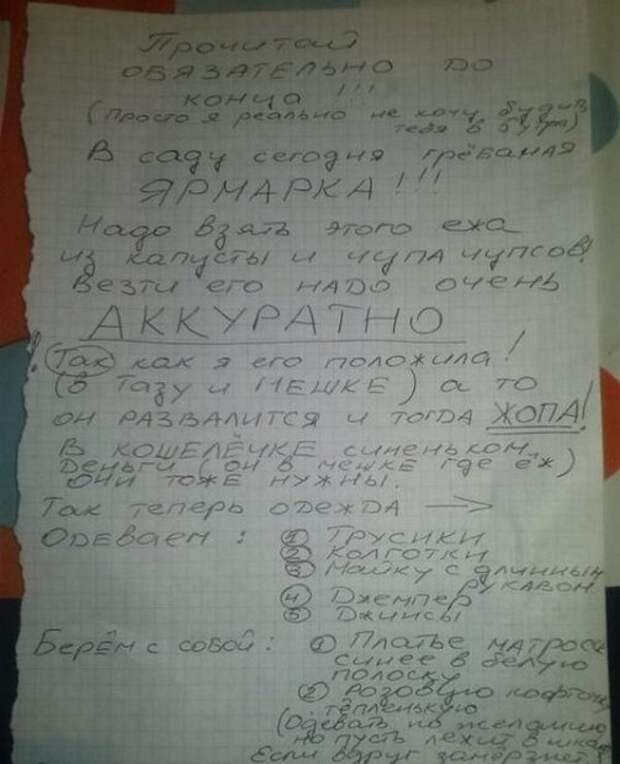 Прочитай
ОБЯЗАТЕЛЬНО ДО
конца!!!
(Просто я реально не хочу будить
тебя в 5 утра)
В саду сегодня грёбаная
ЯРМАРКА!!!
Надо взять этого ежа
из капусты и чупа чупсов!
Везти его НАДО очень
АККУРАТНО
! Так как я его положила!
(в Тазу и МЕШКЕ) а то
он РАЗВАЛИТСЯ и тогда ЖОПА!
В КОШЕЛЁЧКЕ синеньком
Деньги (он в мешке где ёж)
они тоже нужны.
Так теперь одежда →
Одеваем: ① Трусики
② Колготки
③ Майку с длинным
рукавом
④ Джемпер
⑤ Джинсы
Берём с собой: ① Платье матроса
синее в белую
полоску
② Розовую кофточку
тёпленькую
(Одевать по желанию
но пусть лежит в шкафу
Если вдруг замёрзнет